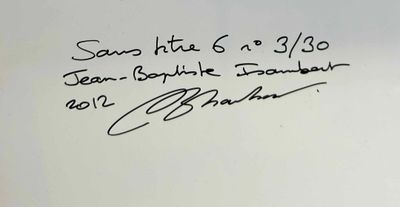 Sans titre 6 n° 3/30
Jean-Baptiste Isambert
2012